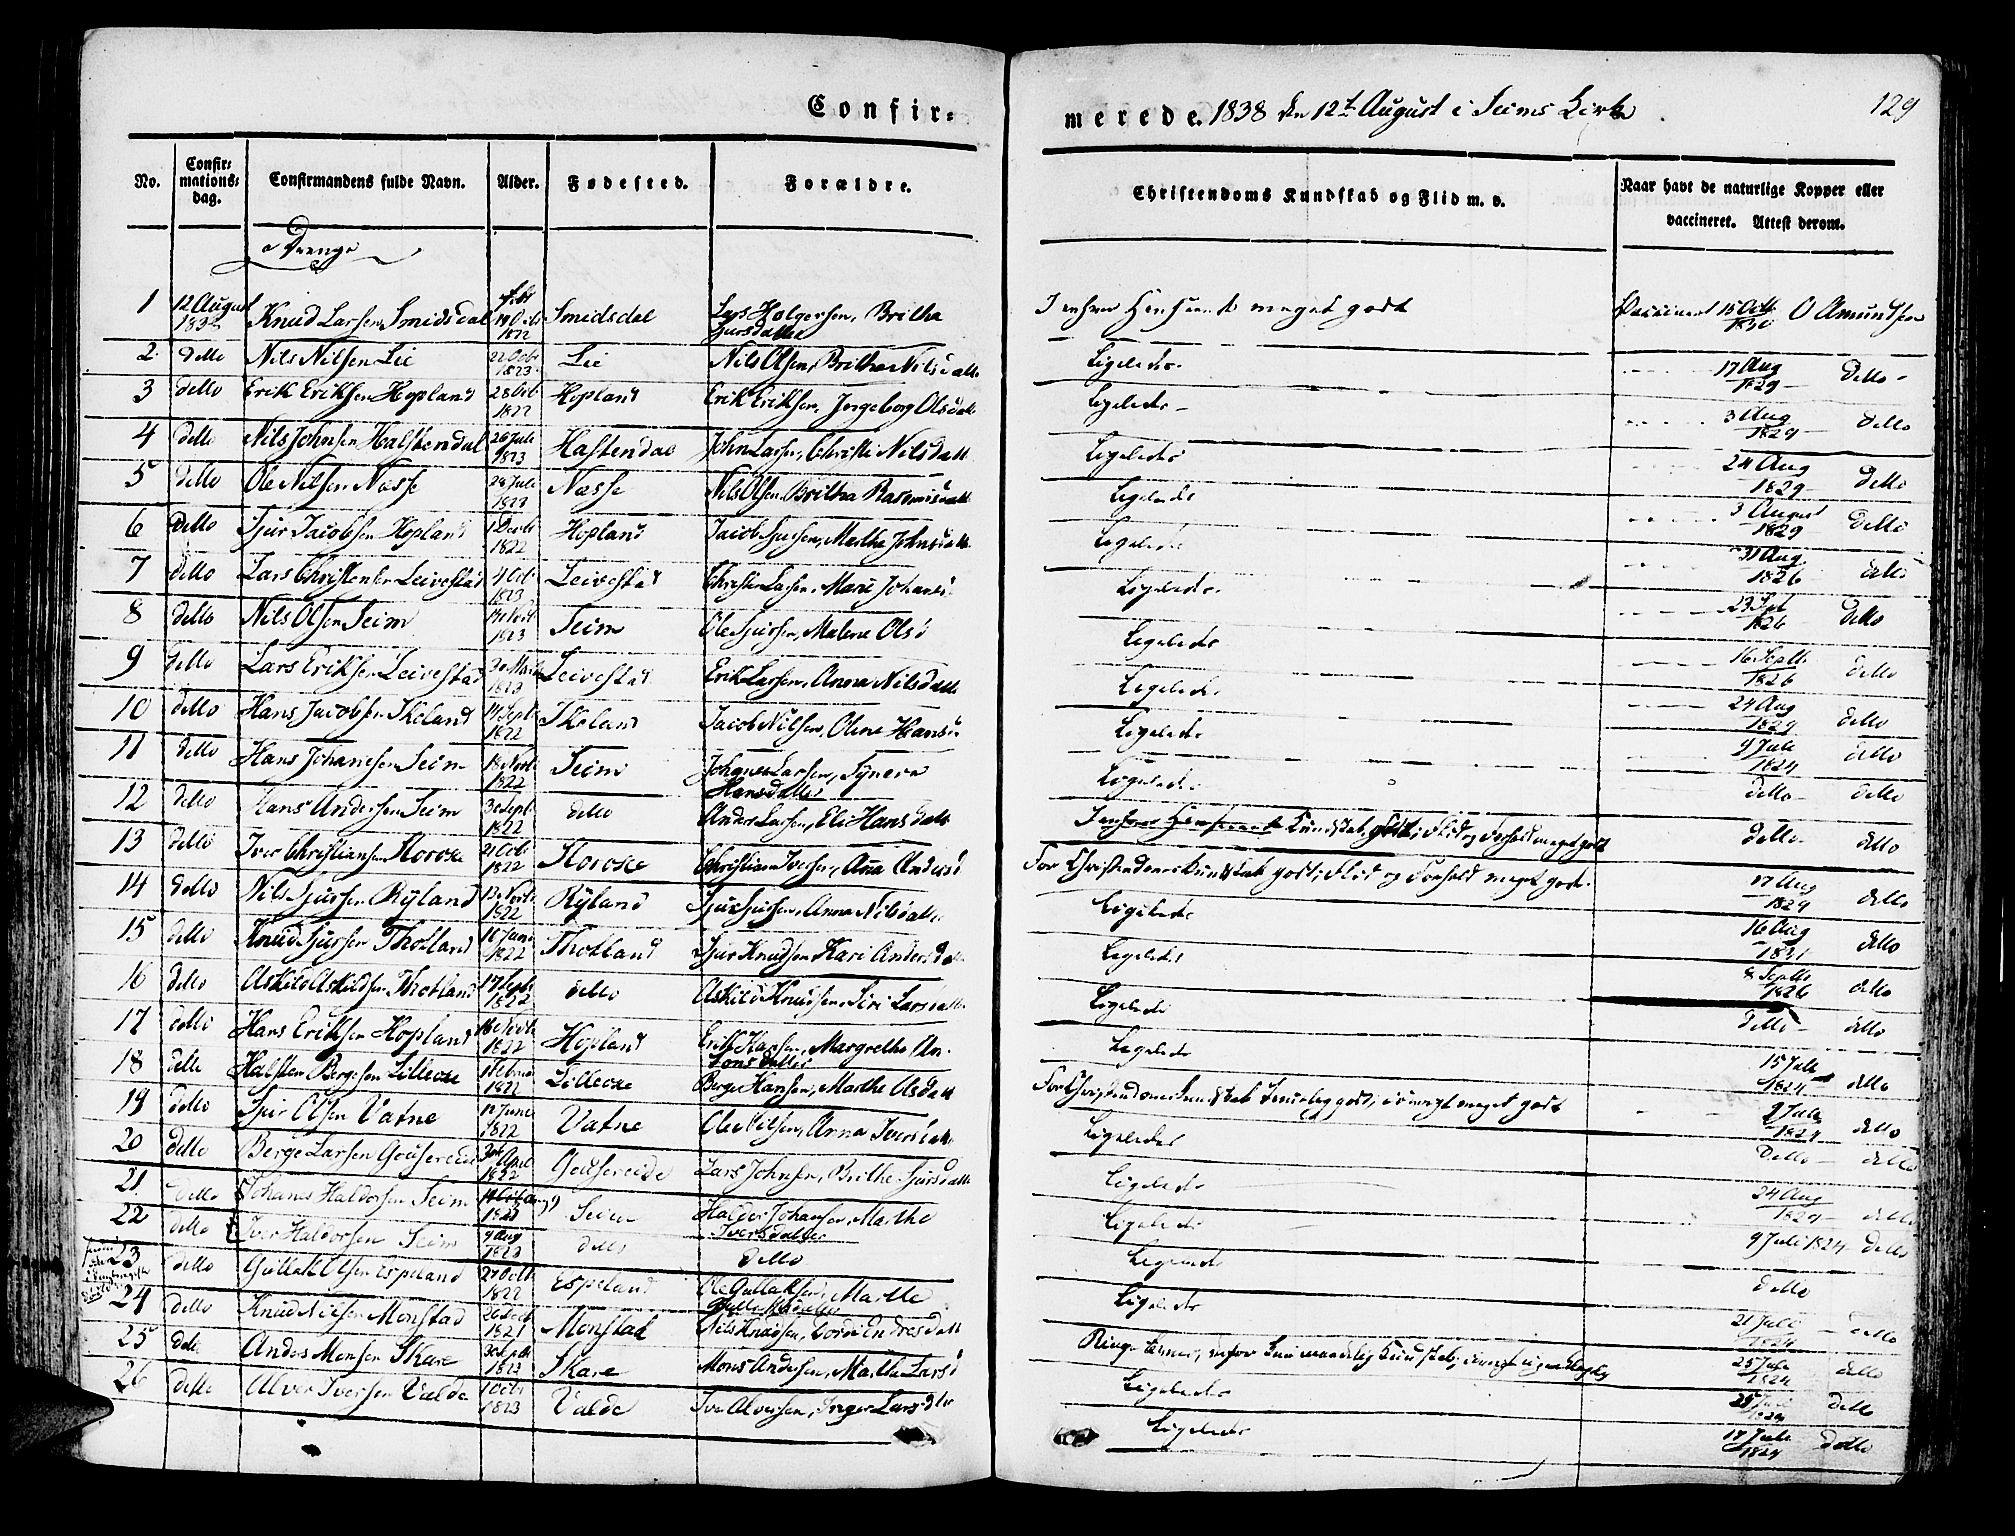 Confir= merede. 1838 den 12te August i Seims Kirke 129
No. Confir= mations= dag. Confirmandens fulde Navn. Alder. Fødested. Forældre. Christendoms Kundskab og Flid m. v. Naar havt de naturlige Kopper eller vaccineret. Attest derom.
Drenge
1 12 August Knud Larsen Smidsdal 1822 Smidsdal Lars Holgersen, Britha Sjursdatter I enhver Henseende meget godt Vaccineret 15 Octb 1830 O Amundsen
2 detto Nils Nilsen Lie 22 Octb 1823 Lie Nils Olsen, Britha Nilsdatt Ligeledes 17 Aug 1829 detto
3 detto Erik Eriksen Hopland 28 Octb 1822 Hopland Erik Eriksen, Ingeborg Olsdatt Ligeledes 3 Aug 1829 detto
4 detto Nils Johnsen Halstendal 26 Juli 1823 Hastendal John Larsen, Christi Nilsdatt Ligeledes 24 Aug 1829 detto
5 detto Ole Nilsen Næsse 28 Juli 1823 Næsse Nils Olsen, Britha Rasmusdatt Ligeledes 3 August 1829 detto
6 detto Sjur Jacobsen Hopland 1822 Hopland Jacob Sjursen, Marthe Johnsdatt Ligeledes 21 Aug 1826 detto
7 detto Lars Christensen Leivestad 4 Octb 1823 Leivestad Christen Larsen, Mari Johansd Ligeledes 23 Sept 1826 detto
8 detto Nils Olsen Seim 1823 Seim Ole Sjursen, Malene Olsd Ligeledes 16 Septb 1826 detto
9 detto Lars Eriksen Leivestad 1823 Leivestad Erik Larsen, Anna Nilsdatt Ligeledes 24 Aug 1829 detto
10 detto Hans Jacobsen Skeland 14 Septb 1822 Skeland Jacob Nilsen, Olene Hansd Ligeledes 9 Juli 1824 detto
11 detto Hans Johanesen Seim 18 Novb 1822 Seim Johanes Larsen, Syneva Hansdatter Ligeledes detto detto
12 detto Hans Andersen Seim 30 Septb 1822 detto Anders Larsen, Eli Hansdatt Kundskab godt, Flid og Forhold meget godt detto detto
13 detto Iver Christiansen Horose 21 Octb 1822 Horose Christian Iversen, Ana Andersd For Christendoms Kundskab godt, Flid og Forhold meget godt. 17 Aug 1829 detto
14 detto Nils Sjursen Ryland 13 Novb 1822 Ryland Sjur Sjursen, Anna Nilsdatt Ligeledes 16 Aug 1831 detto
15 detto Knud Sjursen Thotland 1822 Thotland Sjur Knudsen, Kari Andersdatt Ligeledes 8 Septb 1826 detto
16 detto Askild Askildsen Thotland 17 Septb 1822 detto Askild Knudsen, Siri Larsdatt Ligeledes detto detto
17 detto Hans Eriksen Hopland 1822 Hopland Erik Hansen, Margrethe An- tonsdatter Ligeledes 15 Juli 1824 detto
18 detto Halsten Bergesen Lilleose 1822 Lilleose Berge Hansen, Marthe Asdatt For Christendoms Kundskab temmelig godt, iøvrigt meget godt 2 Juli 1824 detto
19 detto Sjur Olsen Vatne 12 Juni 1822 Vatne Ole Nilsen, Anna Iversdatt Ligeledes detto detto
20 detto Berge Larsen Gousereide April 1822 Gousereide Lars Johnsen, Brithe Sjursdatt Ligeledes 24 Aug 1829 detto
21 detto Johanes Haldorsen Seim Seim Haldor Johansen, Marthe Iversdatter Ligeledes 9 Juli 1824 detto
22 detto Iver Haldorsen Seim 9 Aug 1823 detto detto Ligeledes detto
23 detto Gullak Olsen Espeland 27 Octb 1822 Espeland Ole Gullaksen, Marthe Gullaksdatter Ligeledes 21 Juli 1824 detto
24 detto Knud Nilsen Monstad 1821 Monstad Nils Knudsen, Endresdatt 25 Juli 1824 detto
25 detto Anders Monsen Skare 1823 Skare Mons Andersen, Martha Larsd Ligeledes 25 Juli 1824 detto
26 detto Alver Iversen Valde 1 Octb 1823 Valde Iver Alversen, Inger Larsdtr Ligeledes 17 Juli 1824 detto